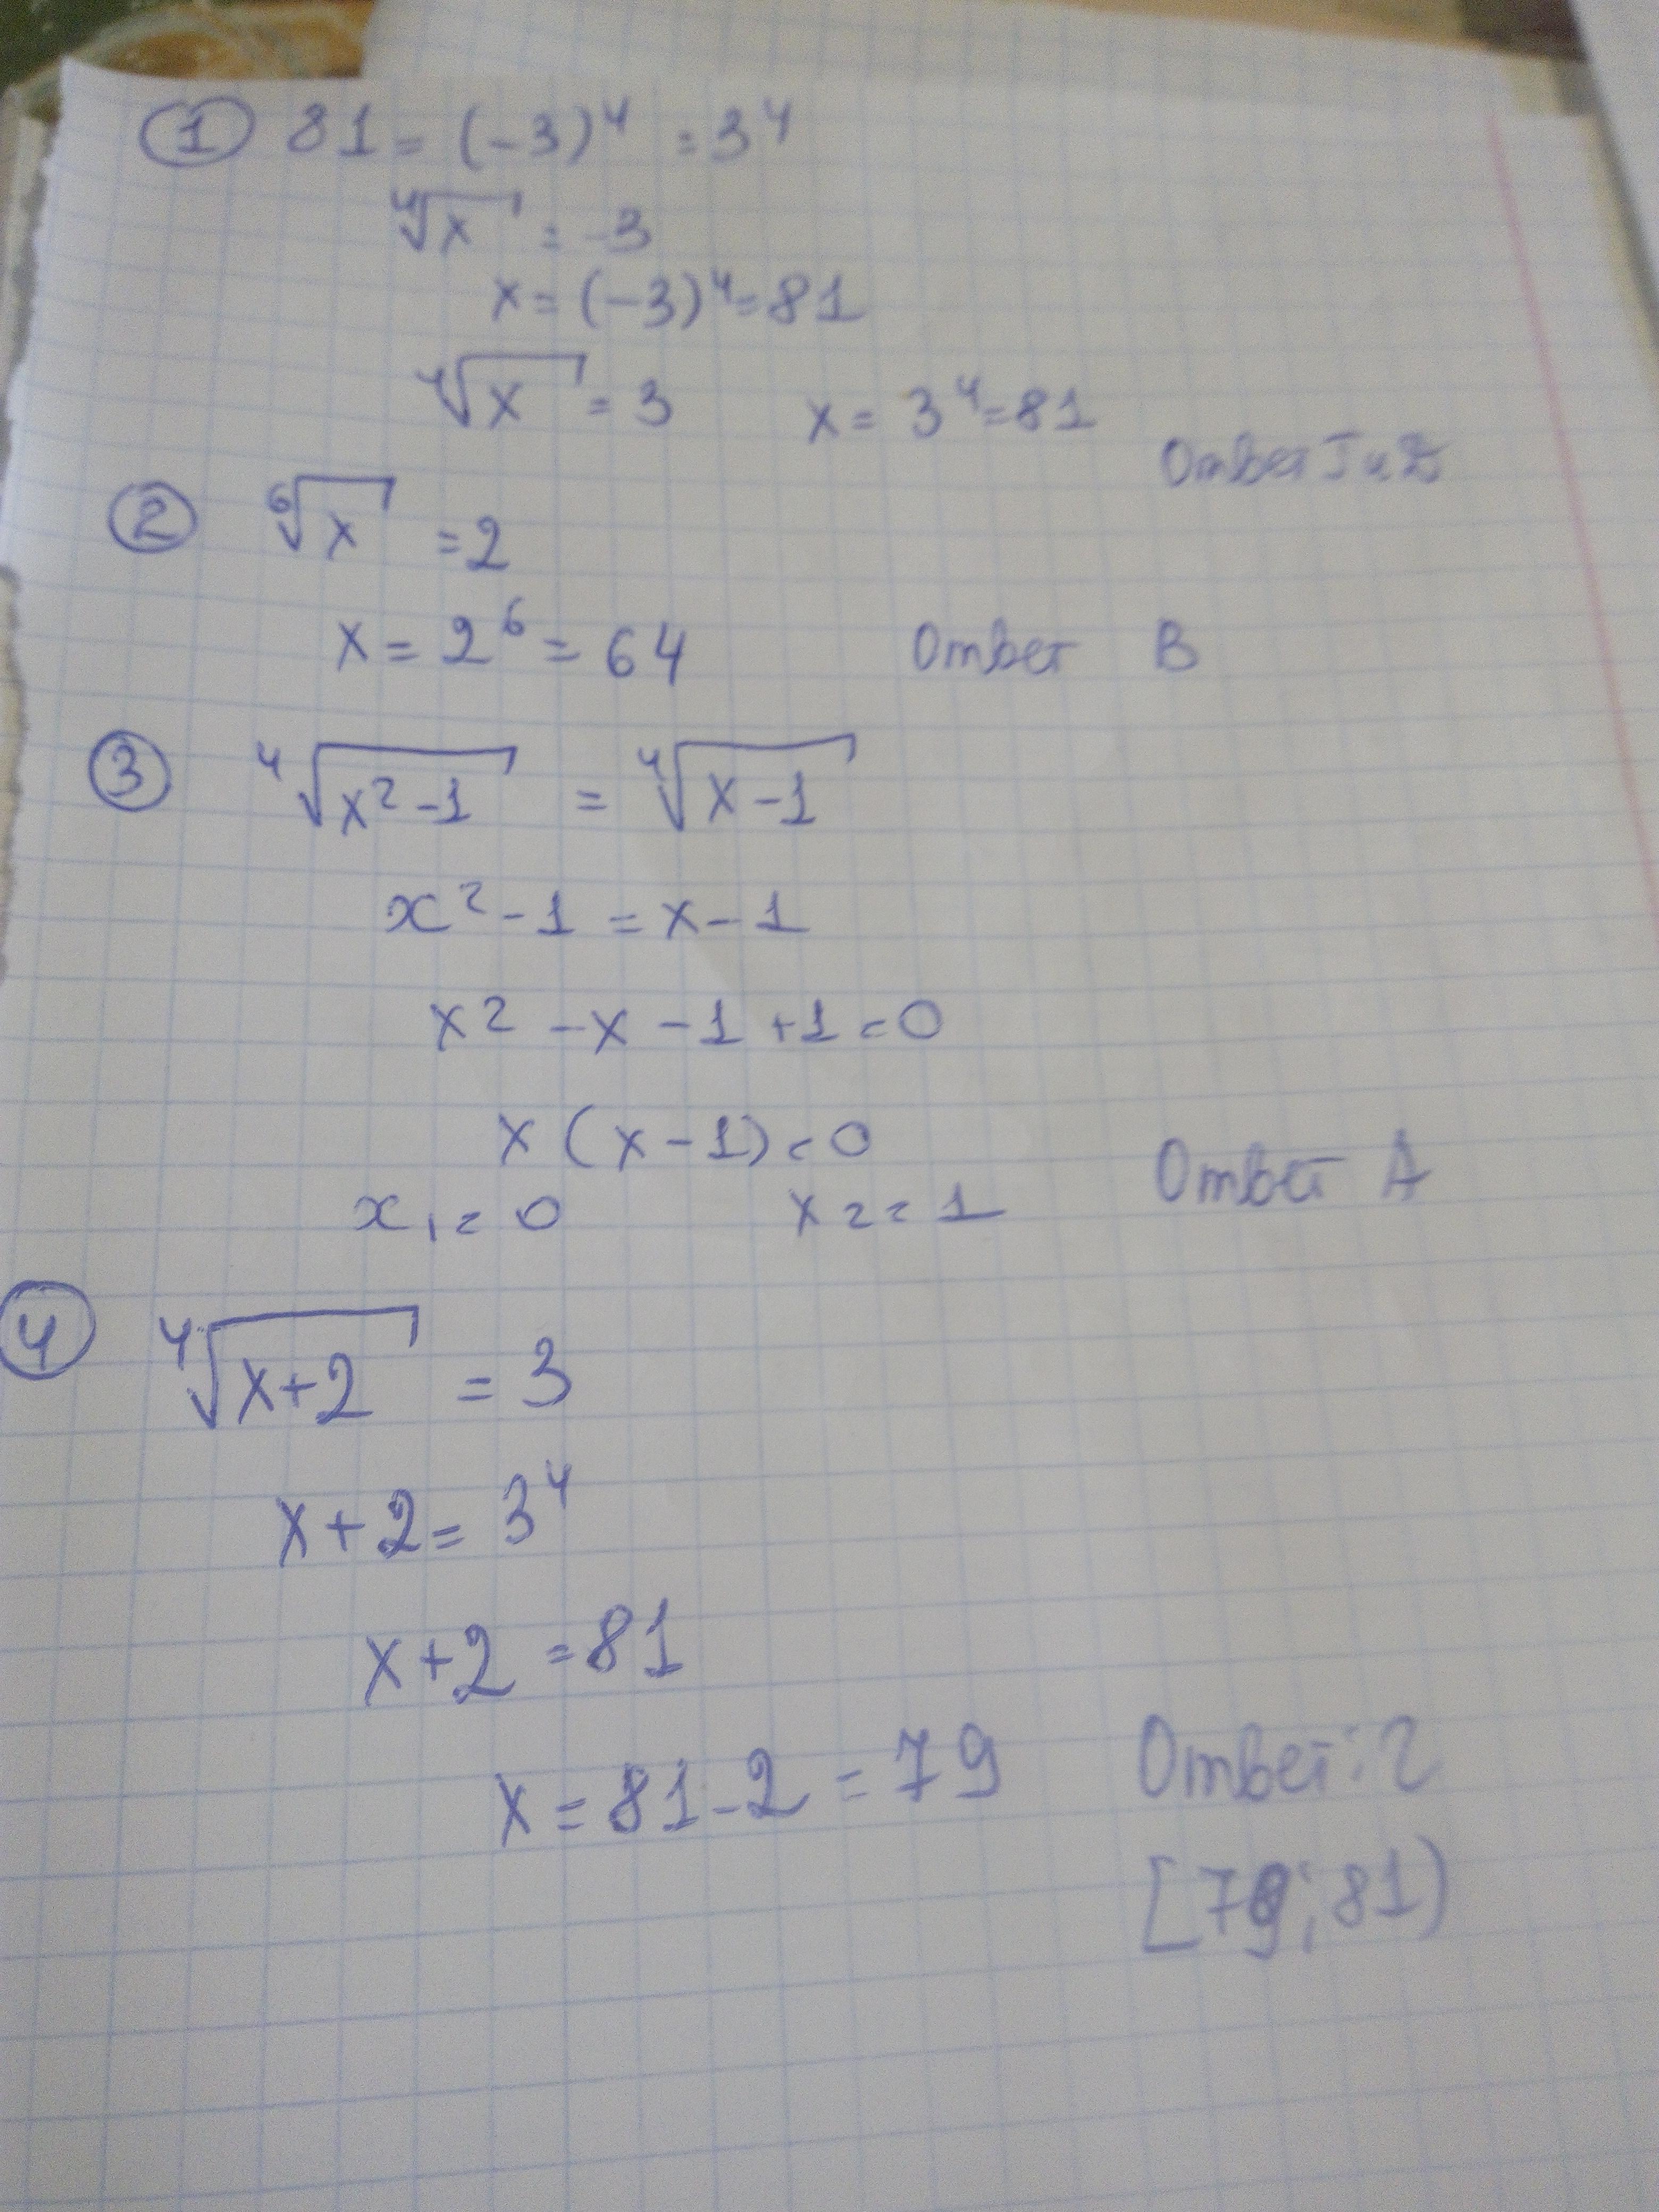 ① 81 = (-3)⁴ = 3⁴
⁴√x = -3
x = (-3)⁴ = 81
⁴√x = 3 x = 3⁴ = 81
Ответ и
② ⁶√x = 2
x = 2⁶ = 64 Ответ В
③ ⁴√x²-1 = ⁴√x-1
x² - 1 = x - 1
x² - x - 1 + 1 = 0
x (x - 1) = 0
Ответ А
x₁ = 0 x₂ = 1
④ ⁴√x+2 = 3
x + 2 = 3⁴
x + 2 = 81
x = 81 - 2 = 79 Ответ: 2
[79; 81)